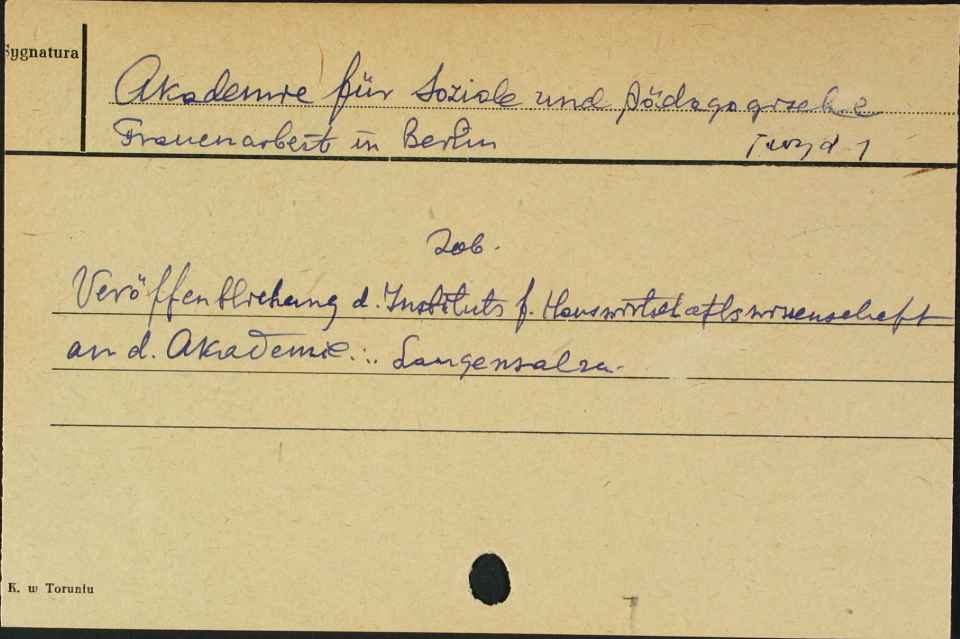 Sygnatura
Akademie für Soziale und Pädagogische
Frauenarbeit in Berlin
Zob.
Veröffentlichung d. Instituts f. Hauswirtschaftswissenschaft
an d. Akademie... Langensalza.
K. w Toruniu